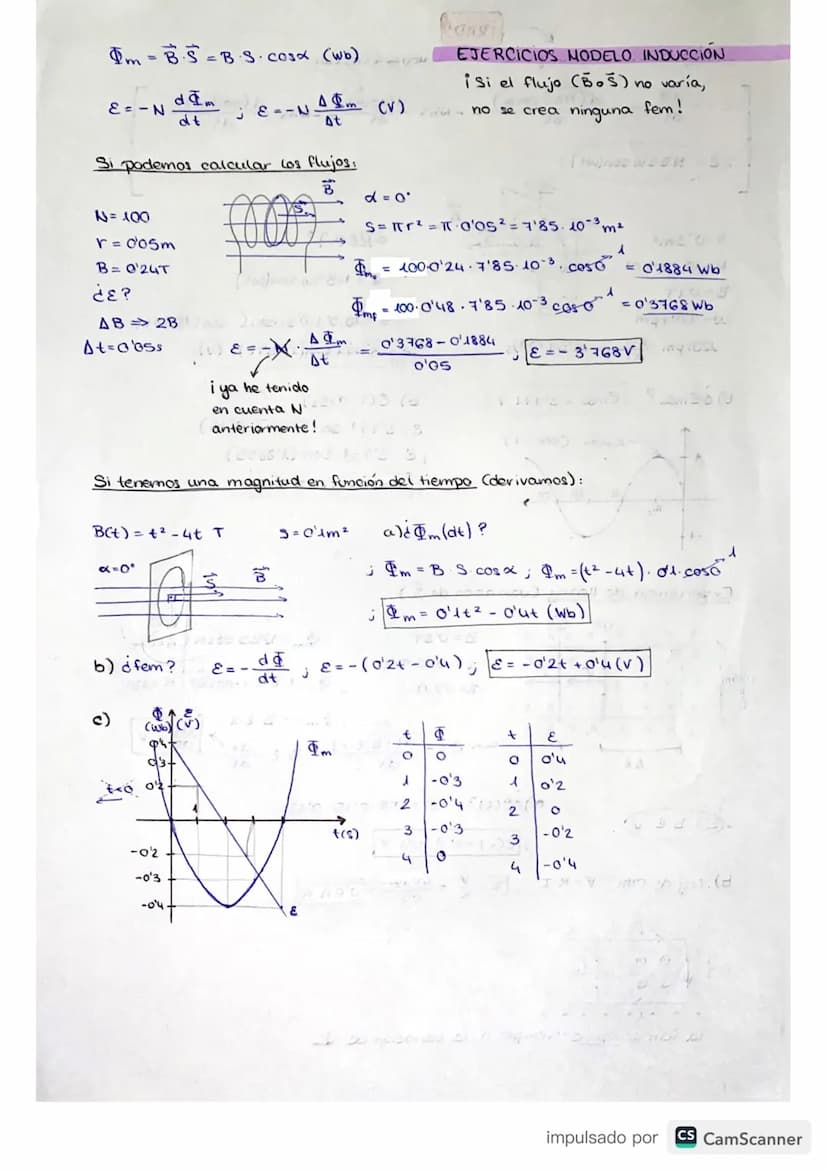 EJERCICIOS MODELO INDUCCIÓN
Φm = B⃗·S⃗ = B·S·cosα (Wb)
¡Si el flujo (B⃗∘S⃗) no varía,
no se crea ninguna fem!
ε = -N dΦm/dt ; ε = -N ΔΦm/Δt (V)
Si podemos calcular los flujos:
N = 100
r = 0'05m
B = 0'24T
¿ε?
ΔB ⇒ 2B
Δt = 0'05s
B⃗
S⃗
α = 0°
S = πr² = π·0'05² = 7'85·10⁻³ m²
Φm₀ = 100·0'24·7'85·10⁻³·cos0 1 = 0'1884 Wb
Φmf = 100·0'48·7'85·10⁻³ cos0 1 = 0'3768 Wb
ε = -N · ΔΦm/Δt = 0'3768 - 0'1884 / 0'05 ; ε = - 3'768V
¡ya he tenido
en cuenta N
anteriormente!
Si tenemos una magnitud en función del tiempo (derivamos):
B(t) = t² - 4t T S = 0'1m² a) ¿Φm(dt)?
α = 0°
S⃗
B⃗
; Φm = B S cosα ; Φm = (t² - 4t) · 0'1 · cos0 1
; Φm = 0'1t² - 0'4t (Wb)
b) ¿fem? ε = - dΦ/dt ; ε = -(0'2t - 0'4) ; ε = -0'2t + 0'4 (V)
c)
Φ ε
(Wb) (V)
0'4
0'3
0'2
t=0
1
-0'2
-0'3
-0'4
Φm
t(s)
ε
t Φ
0 0
1 -0'3
2 -0'4
3 -0'3
4 0
t ε
0 0'4
1 0'2
2 0
3 -0'2
4 -0'4
impulsado por CS CamScanner